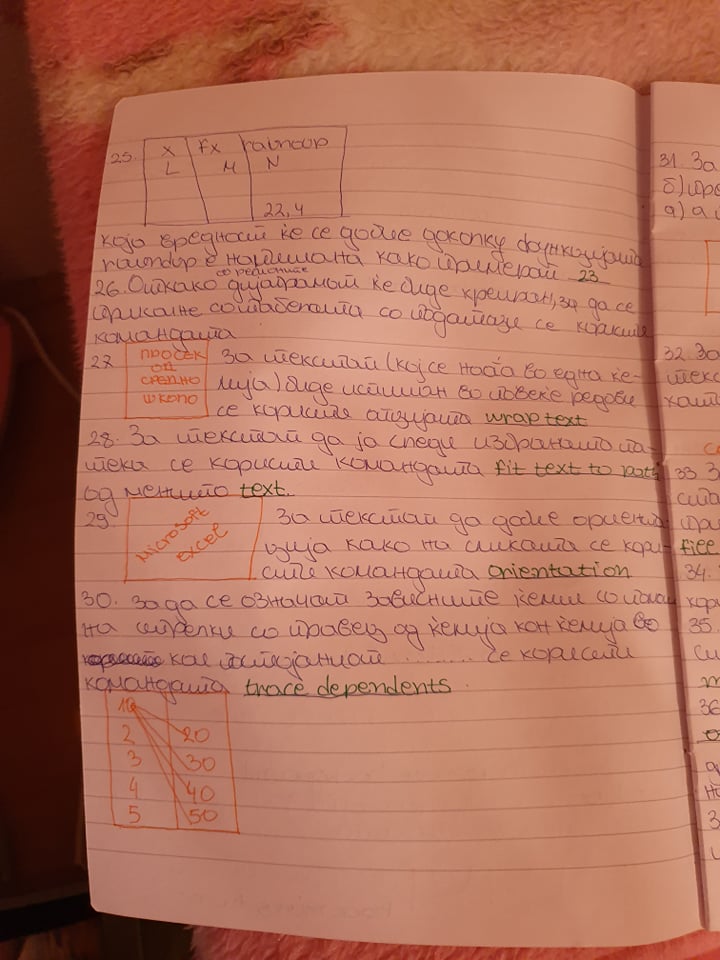 25. X fx raundup
L M N
22,4
која вредност ќе се добие доколку функцијата
raundup е напишана како примерот 23
со решение
26. Откако дијаграмот ќе биде креиран, за да се
прикаже со табелата со податоци се користи
командата
27. ПРОСЕК За текстот (кој се наоѓа во една ќе-
ОД
СРЕДНО лија) биде испишан во повеќе редови
ШКОЛО
се користи опцијата wrap text
28. За текстот да ја следи избраната па-
тека се користи командата fit text to path
од менито text.
29. Microsoft За текстот да добие ориента
Excel ција како на сликата се кори-
сти командата orientation
30. За да се означат зависните ќелии со помош
на стрелки со правец од ќелија кон ќелија во
кои ......... се користи
командата trace dependents.
10
2 20
3 30
4 40
5 50
31. За
б) пре
а) а
32. За
текс
кат
33. З
сита
при
file
34.
кор
35.
си
m
36
о
д
на
З